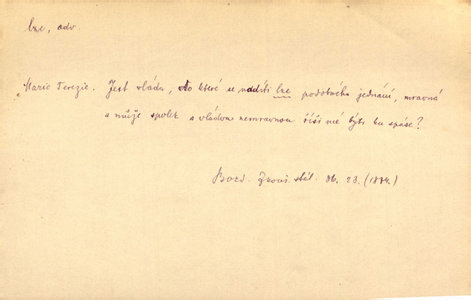 lze, adv
„Marie Terezie. Jest vláda, do které se nadíti lze podobného jednání, mravná
a může spolek s vládou nemravnou říši mé býti ku spáse?
Bozd. Zkouš. stát. 86. 23. (1874.)